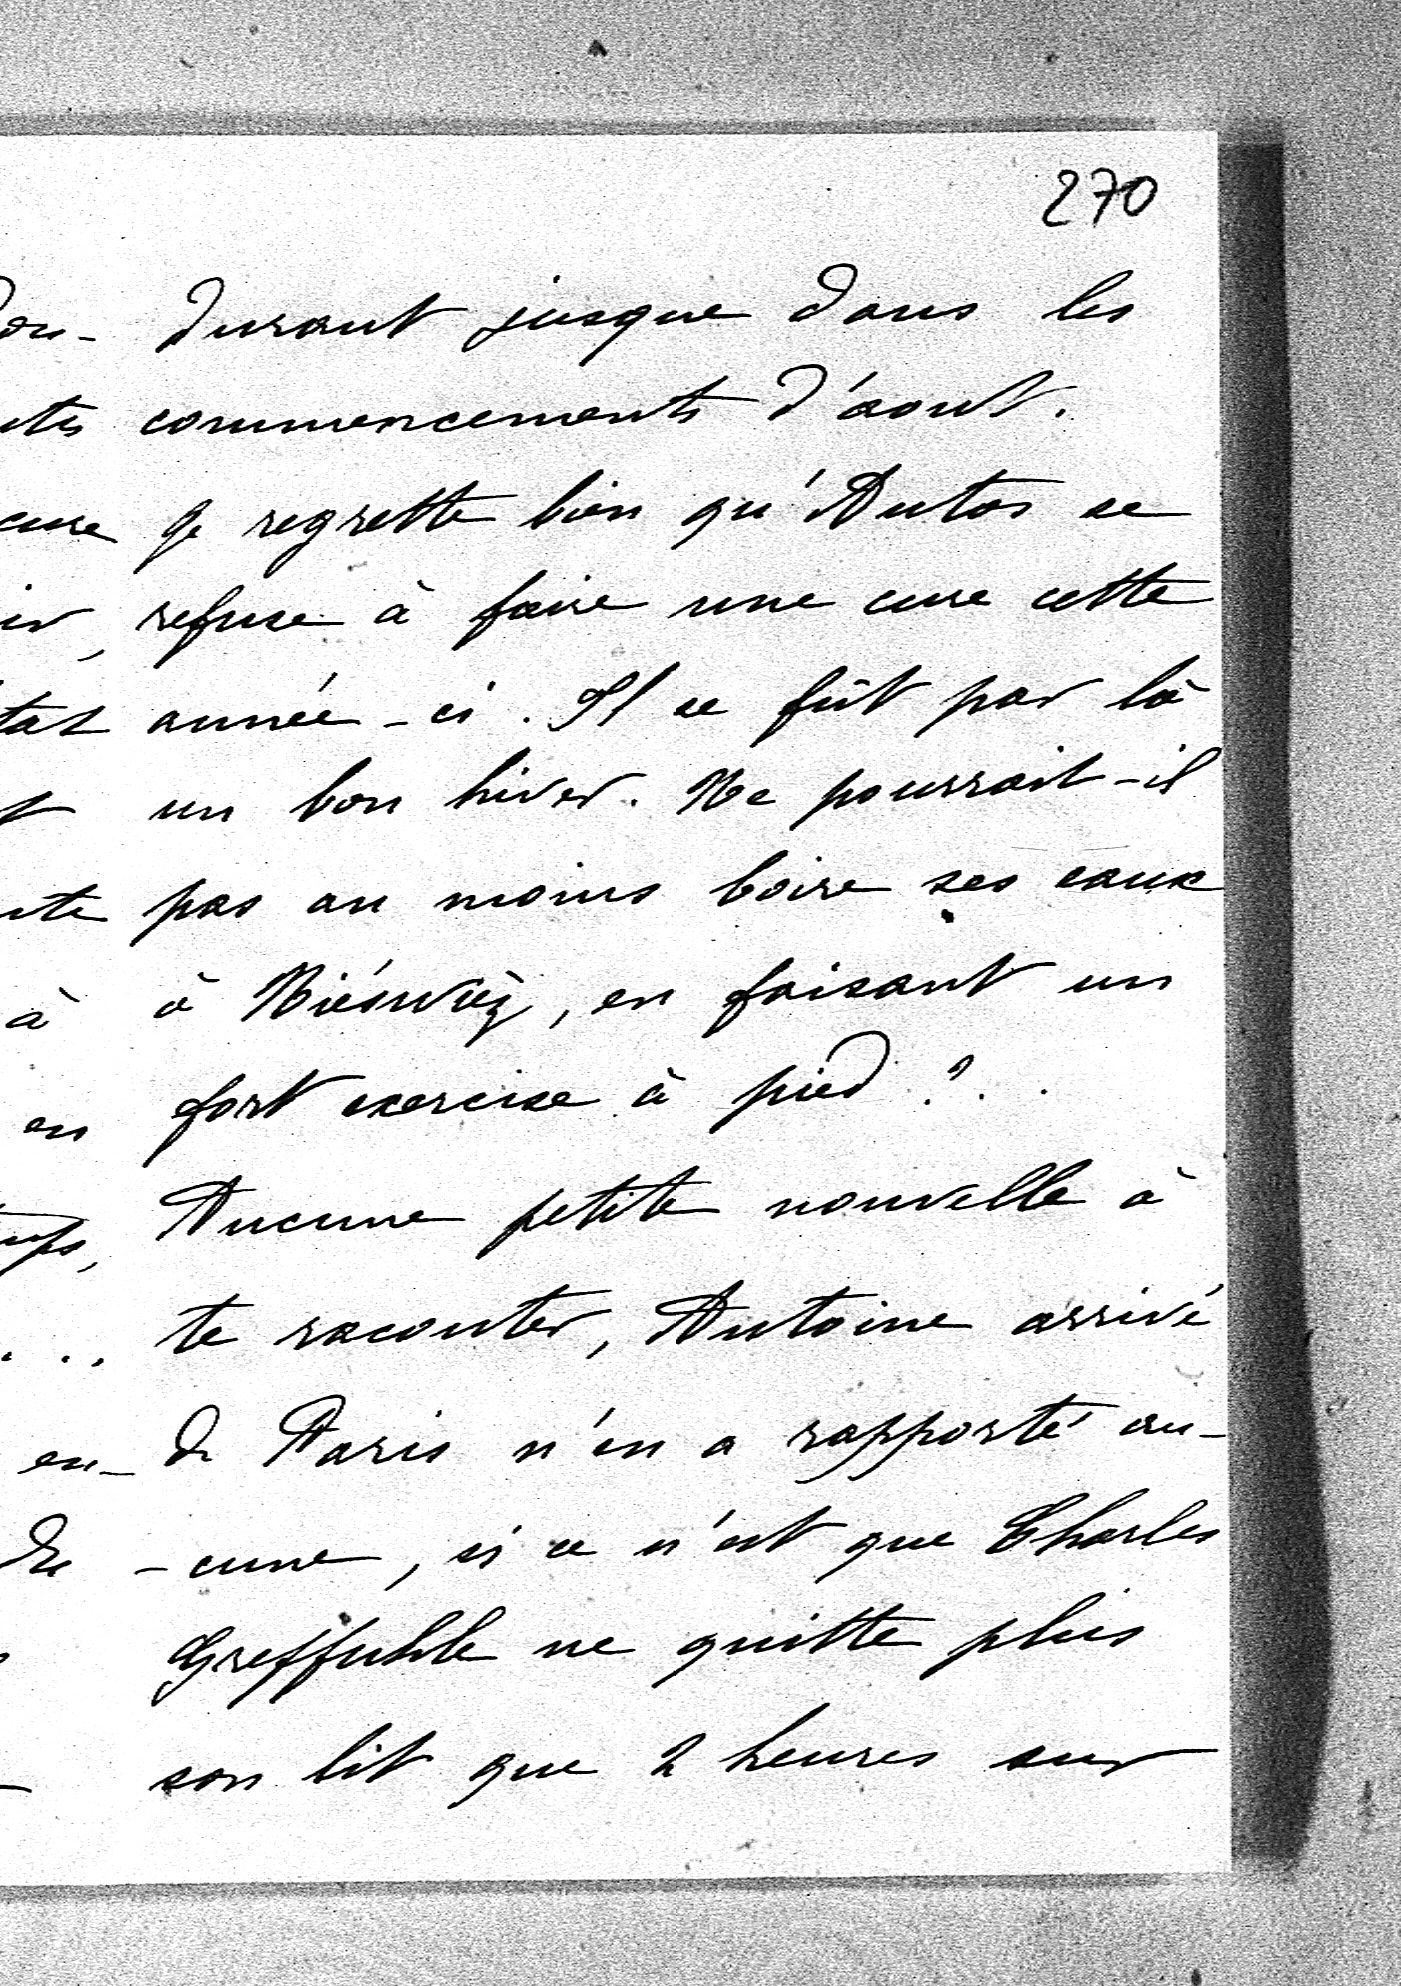 270
durant jusque dans les
commencements d'août.
Je regrette bien qu'Antos se
refuse à faire une cure cette
année-ci. Il se fût par là
un bon hiver. Ne pourrait-il
pas au moins boire ses eaux
à Nieświéż, en faisant un
fort exercise à pied ?..
Aucune petite nouvelle à
te raconter, Antoine arrivé
de Paris n'en a rapporté au-
-cune, si ce n'est que Charles
Greffuhle ne quitte plus
son lit que 2 heures sur